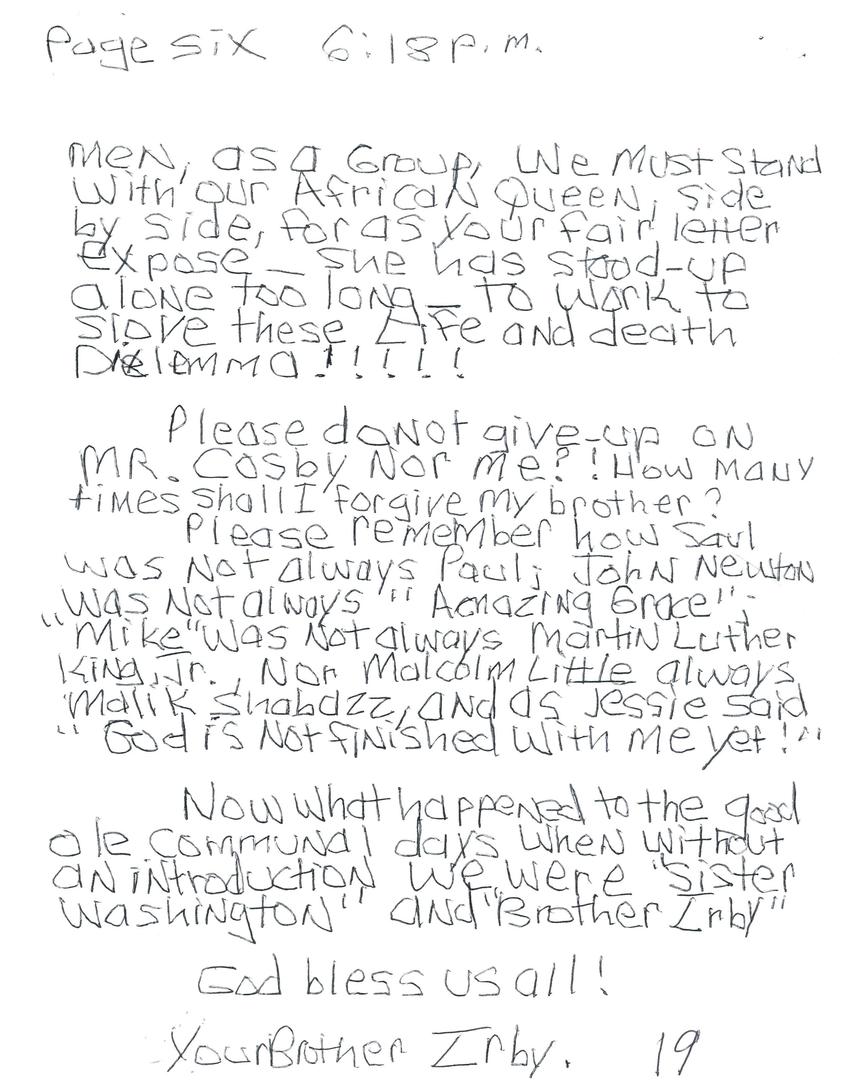 Page six 6:18 p.m.
Men, as a Group, We Must Stand
With our African Queen, side
by side, for as your fair letter
expose — she has stood-up
alone too long — to work to
slove these Life and death
Dielemma!!!!!
Please do Not give-up on
MR. Cosby Nor me?! How many
times shall I forgive my brother?
Please remember how Saul
was Not always Paul; John Newton
Was Not always "Amazing Grace";
"Mike" was Not always Martin Luther
King, Jr., Nor Malcolm Little always
Malik Shabazz, and as Jessie said
"God is Not finished with me yet!"
Now what happened to the good
ole communal days when without
an introduction we were "Sister
Washington" and "Brother Irby"
God bless us all!
Your Brother Irby. 19